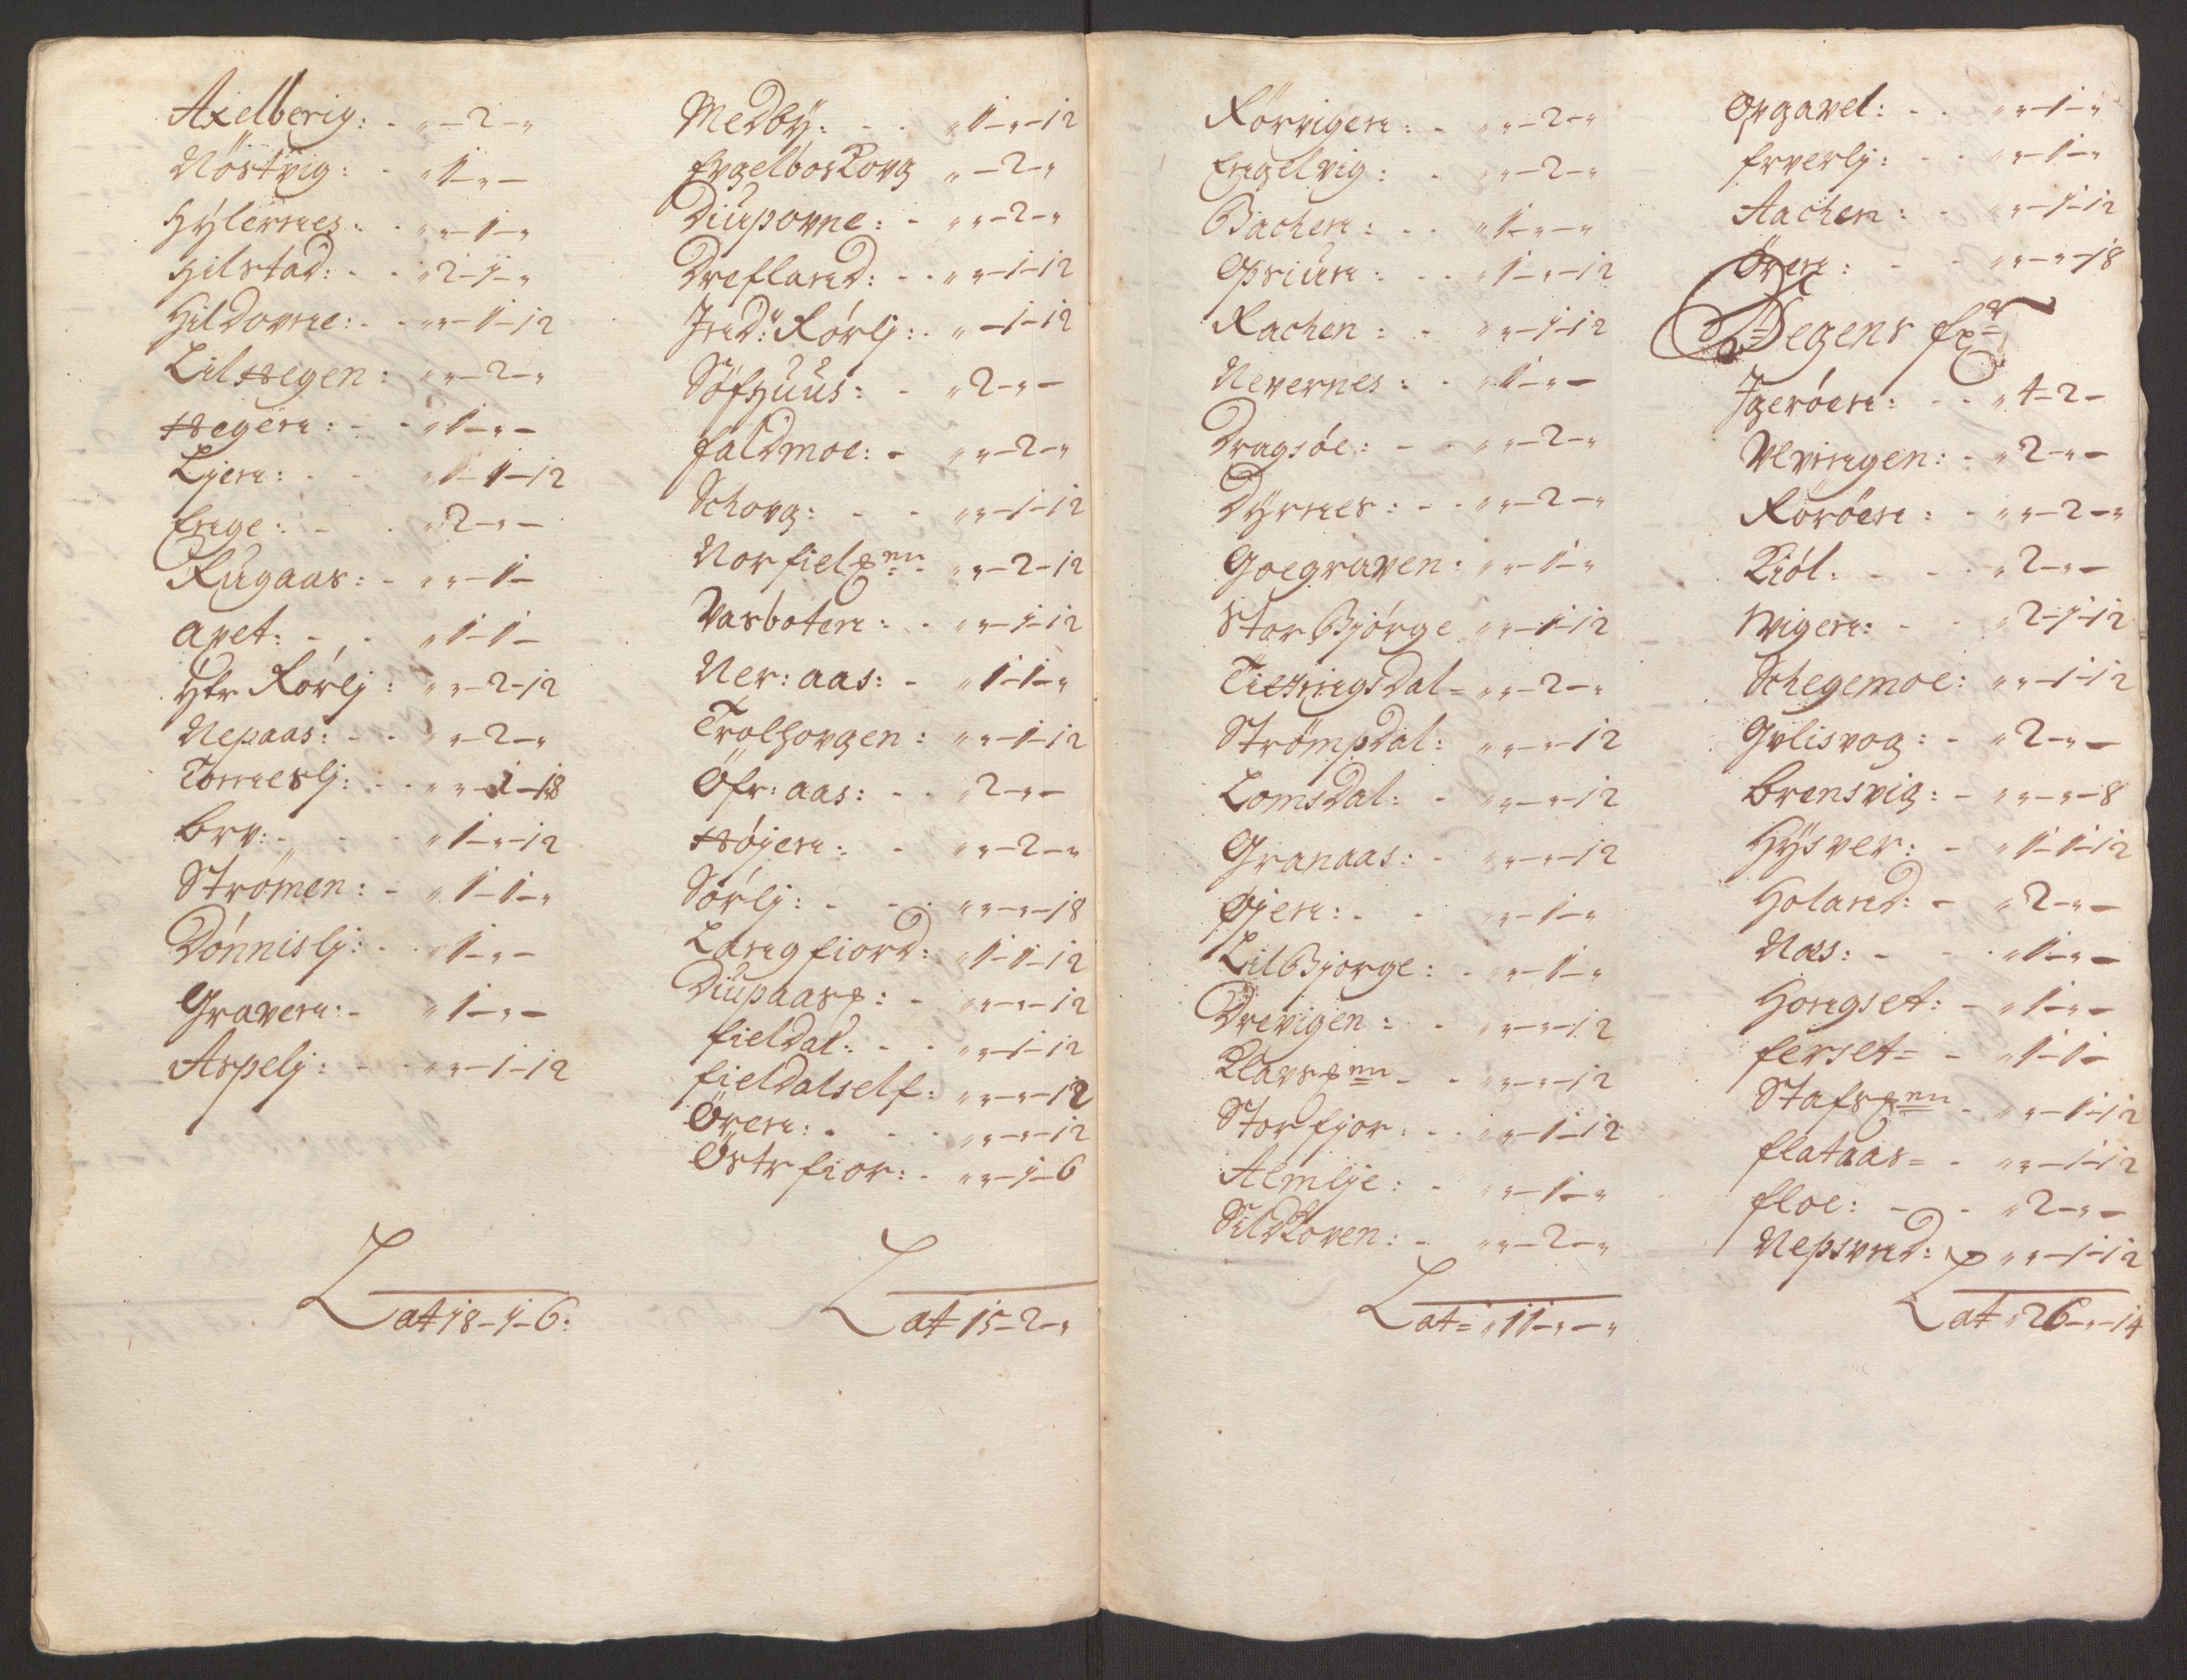 Axelberig: - „ – 2 – „
Nöstvig: - „ 1 – „ –
Hÿlernes: - „ „ – 1 – „
Hilstad: - - „ 2 – 1 – „
Hildovne: - „ „ – 1 – 12
Lilhegen: „ „ – 2 – „
Hegen: - - „ 1 – „ –
Ljen: - - „ 1 – 1 – 12
Enge: - - „ 2 – „ –
Rugaas: - „ „ – 1 –
Apet: - - „ 1 – 1 –
Ytr Rörlj: „ „ – 2 – 12
Nepaas: - - „ „ – 2 – „
Tomeslj: - - „ „ – 1 – 18
Brv: - - - „ 1 – „ – 12
Strömen: - „ 1 – 1 – „
Dönnislj: - - „ 1 – „ –
Graven: - „ 1 – „ –
Aspelj: - - „ „ – 1 – 12
Lat 18 – 1 – 6:
Medbÿ: - - „ 1 – „ – 12
Engelboskovg „ – 2 – „
Diupovne: - „ „ – 2 – „
Drefland: - - „ „ – 1 – 12
Ind: Rörlj: - „ – 1 – 12
Söfhuus: - „ 2 – „ –
Faldmoe: - „ „ – 2 – „
Schovg: - - „ „ – 1 – 12
Norfielpen - „ „ – 2 – 12
Vasboten: - „ „ – 1 – 12
Ner: aas: - „ 1 – 1 – „
Trolhovgen: „ „ – 1 – 12
Öfr: aas: - - „ 2 – „ –
Höjen: - „ „ – 2 – „
Sörlj: - - - „ „ – „ – 18
Langfiord: „ 1 – 1 – 12
Diupaasp: - „ „ – „ – 12
Fieldal: - - „ „ – 1 – 12
Fieldalself: „ „ – „ – 12
Ören: - - - „ „ – „ – 12
Östr fior: - „ „ – 1 – 6
Lat 15 – 2 – „
Rörvigen: - „ „ – 2 – „
Engelvig: - „ „ – 2 – „
Bachen: - - „ 1 – „ – „
Opsiun: - - „ 1 – „ – 12
Rachen: - „ „ – 1 – 12
Nevernes: - „ 1 – „ –
Dragsöe: - - „ „ – 2 – „
Dÿrnes: - - „ „ – 2 – „
Goegraven: „ „ – 1 – „
Stor Björge „ „ – 1 – 12
Tiethingsdal = „ „ – 2 – „
Strömpdal: „ „ – „ – 12
Lomsdal: - „ „ – „ – 12
Granaas: - „ „ – „ – 12
Øjen: - - „ „ – 1 – „
Lil Bjorge: - „ „ – 1 – „
Drevigen: - „ „ – „ – 12
Klavspen - - „ „ – „ – 12
Storfjor: - - „ „ – 1 – 12
Almlje: - „ „ – 1 – „
Sildhoven: - „ „ – 2 – „
Lat = „ 11 – „ – „
Opgavel: - - „ „ – 1 – „
Erverlj: - - „ „ – 1 – „
Aachen: - „ „ – 1 – 12
Ören: - - „ „ – „ – 18
Begens
Igeröen: - - „ 4 – 2 –
Vlvingen: - „ 2 – „ –
Röröen: - „ „ – 2 – „
Kiöl: - - - „ 2 – „ –
Wigen: - - „ 2 – 1 – 12
Schegemoe: „ „ – 1 – 12
Gvlisvog: - „ 2 – „ –
Brensvig: - „ „ – „ – 8
Hÿsver: - „ 1 – 1 – 12
Holand: - „ 2 – „ –
Næs: - - - „ 1 – „ –
Hongset: - „ 1 – „ –
Ferset = - „ 1 – 1 –
Stafspen - „ „ – 1 – 12
Flataas = - „ „ – 1 – 12
Floe: - - „ 2 – „ –
Nepsvnd: „ „ – 1 – 12
Lat „ 26 – „ – 14